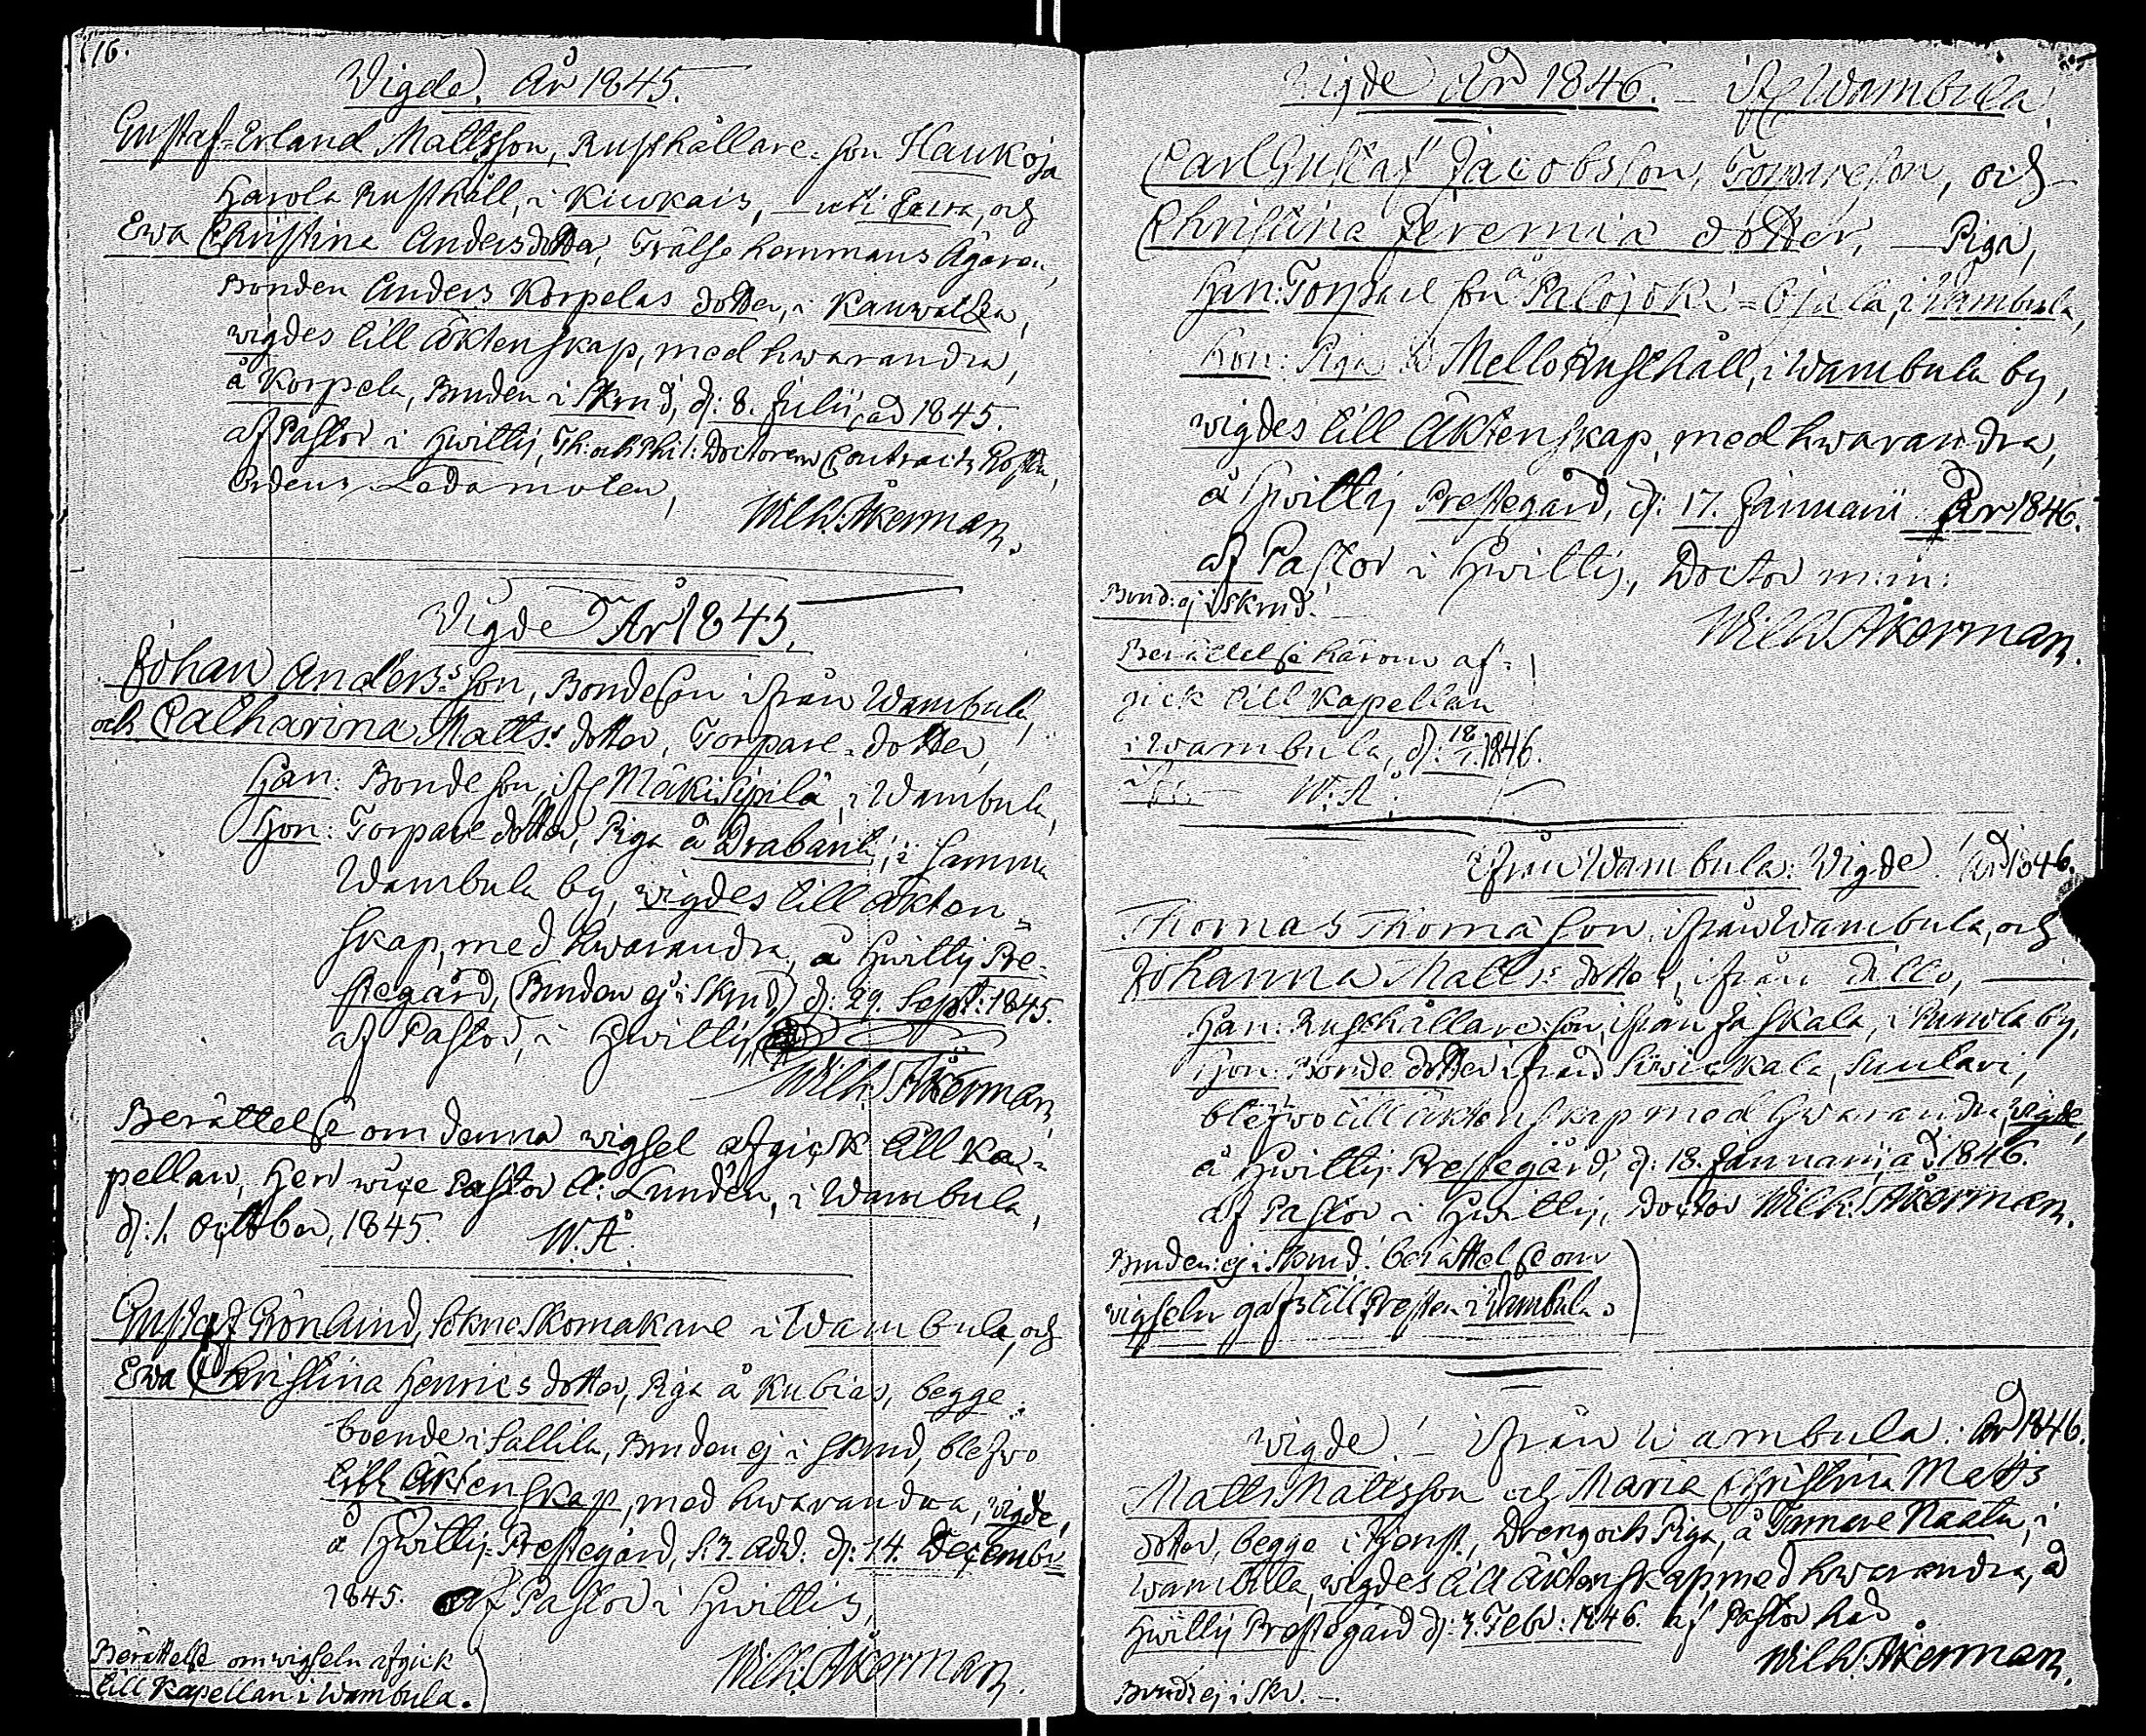 16.
Vigde. År 1845.
Gustaf=Erland Mattsson, Rusthållare=son Haukoja
Harola Rusthåll, i Kiukais, – uti Eura, och
Ewa Christina Andersdotter, Frälse hemmans Ägaren,
Bonden Anders Korpelas dotter, i Kauwatsa,
wigdes till Äktenskap, med hwarandra,
å Korpela, Bruden i Skrud, d: 8. Julii, åd 1845.
af Pastor i Hwittis, Th: och Phil: Doctoren Contracts Prosten,
Ordens Ledamoten,
Wilh: Åkerman.
Vigde År 1845.
Johan Anders: son, Bondeson ifrån Wambula,
och Catharina Matts: dotter, Torpare=dotter,
Han: Bondeson, ifr Mäkisipilä, i Wambula,
Hon: Torpare dotter, Piga å Drabant, i samma
Wambula by, wigdes till äkten=
skap, med hwarandra, å Hwittis Pre=
stegård, (Bruden ej i Skrud) d: 29. Sept: 1845.
af Pastor, i Hwittis,
Wilh: Åkerman,
Berättelse om denna wigsel afgick till Ka=
pellan, Herr wice Pastor A: Lunden, i Wambula,
d: 1. October, 1845. W. Å.
Gustaf Grönlund, Sokneskomakare i Wambula, och
Ewa Christina Henricsdotter, Piga å Kubias, begge
boende i Sallila, Bruden ej i skrud, blefwo
till Äktenskap, med hwarandra, vigde,
å Hwittis Prestegård, S. 3. Adv. d: 14. Decembr:
1845. af Pastor i Hwittis,
Wilh: Åkerman.
Berättelse om wigseln afgick
till Kapellan i Wambula.
Vigde År 1846. – ifr Wambula.
Carl Gustaf Jacobsson, Torpareson, och
Christina Jeremiæ dotter, – Piga,
Han: Torpare son å Palojoki=Ojala, i Wambula,
hon: Piga å Mello Rusthåll, i Wambula by,
wigdes till Äktenskap, med hwarandra,
å Hwittis Prestegård, d: 17. Januarii År 1846.
af Pastor i Hwittis, Doctor m:m:
Brud: ej i skrud.
Wilh: Åkerman.
Berättelse härom af=
gick till Kapellan
i Wambula, d: 18/1. 1846.
W. Å.
Ifrån Wambula: Vigde. År 1846.
Thomas Thomasson, ifrån Wambula, och
Johanna Matts: dotter, ifrån ditto,
Han: Rusthållare: son, ifrån Jaskala, i Punola by,
Hon: Bonde dotter ifrån Siwickala, Suutari,
blefwo till äktenskap med hwarandra, vigde,
å Hwittis Prestegård, d: 18. Januarii, åd 1846.
af Pastor i Hwittis, Doctor Wilh: Åkerman.
Bruden: ej i Skrud. berättelse om
wigseln gafs till Presten i Wambula.
wigde. – ifrån Wambula. År 1846.
Matts Mattsson och Maria Christina Matts
dotter, begge i tjenst, Dreng och Piga, å Tamare Naatu, i
Wambula, wigdes till äktenskap med hwarandra, å
Hwittis Prestegård d: 3. Febr: 1846. af Pastor här
Wilh: Åkerman.
Brud: ej i Skr. –